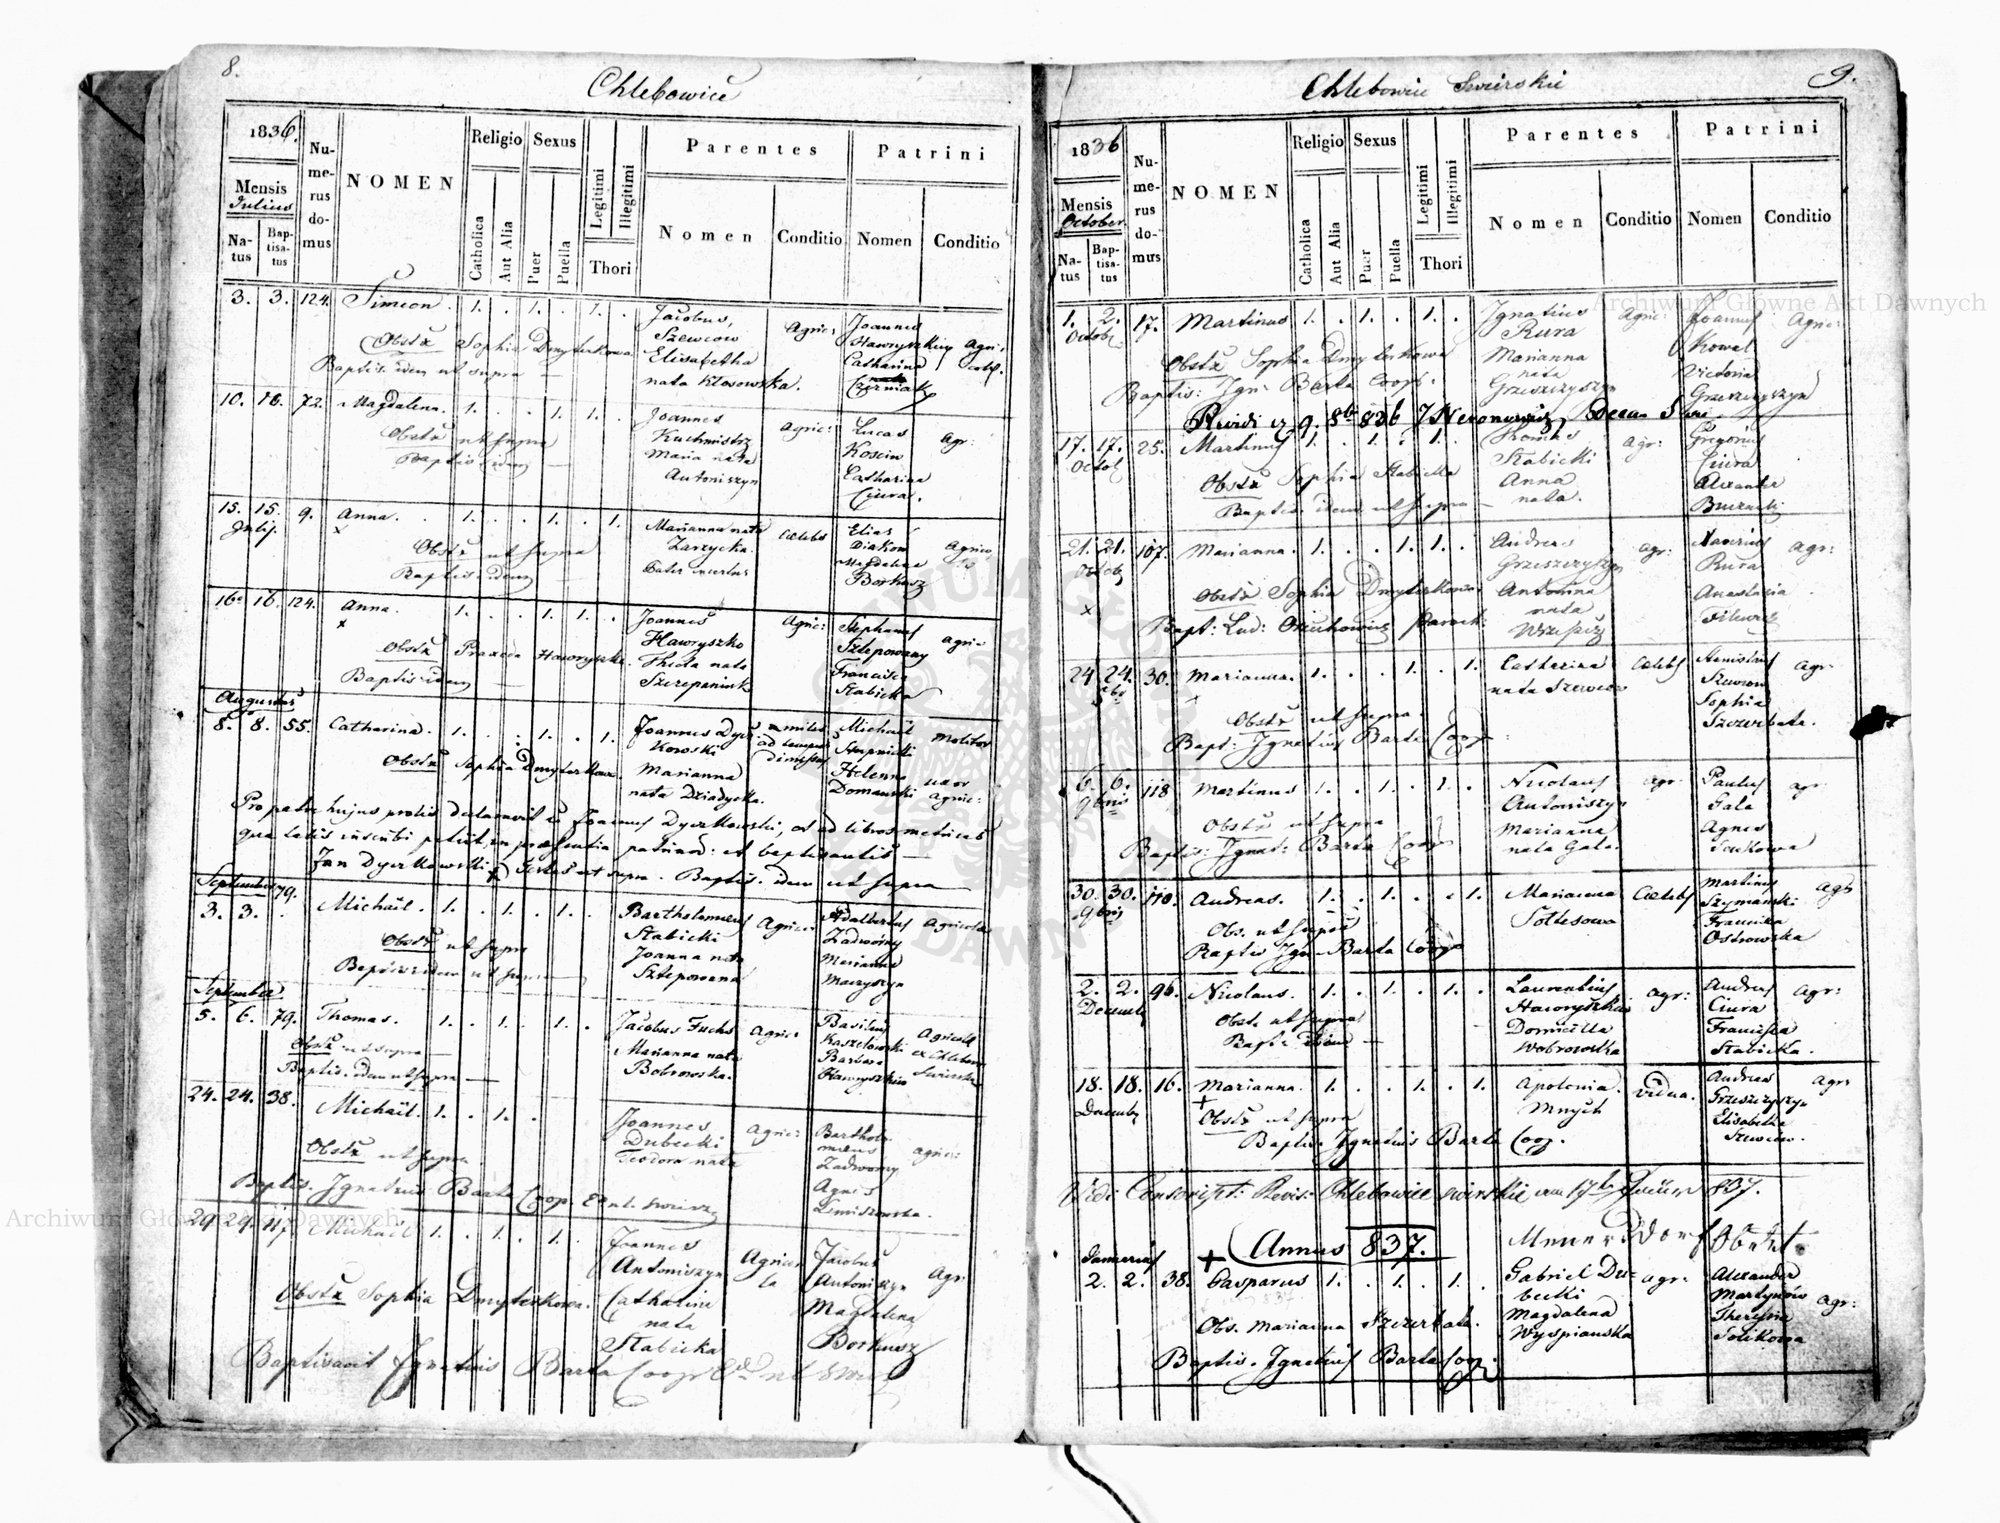 8.
Chlebowice
1836.
Mensis
Julius
Natus
Baptisatus
Numerus domus
NOMEN
Religio
Catholica
Aut Alia
Sexus
Puer
Puella
Legitimi
Illegitimi
Thori
Parentes
Nomen
Conditio
Patrini
Nomen
Conditio
3. 3. 124. Simeon. 1. . 1. . 1. .
Jacobus, Szewcow Elisabetha nata Klosowska. Agric:
Joannes Hawryszkiw Catharina Czerniak Agri:
Obstx Sophia Dmyterkowa
Baptis. idem ut supra
10. 10. 72. Magdalena. 1. . . 1. 1. .
Joannes Kuchmistrz Maria nata Antoniszyn Agric:
Lucas Kosciw Catharina Ciura. Agr:
Obstx ut supra
Baptis idem
15. 15. Julij. 9. Anna. . 1. . . 1. . 1.
x
Marianna nata Zarzycka. Pater incertus Cælebs
Elias Diakow Magdalena Borkusz Agrico
Obstx ut supra
Baptis. idem
16. 16. 124. Anna. 1. . . 1. 1. .
x
Joannes Hawryszko Thecla nata Szczepaniuk Agric:
Stephanus Sztepowany Francisca Stabicka Agric:
Obstx Praxeda Hawryszko.
Baptis idem
Augustus
8. 8. 55. Catharina. 1. . . 1. . 1.
Joannes Dyczkowski Marianna nata Dziadycka. miles ad tempus dimissus
Michael Helena Domanski molitor uxor agric:
Obstx Sophia Dmyterkowa.
Pro patre hujus prolis declaravit se Joannes Dyczkowski, et ad libros metrices
qua talis inscribi petiit, in præsentia patrinor: et baptisantis
Jan Dyczkowski + Testes ut supra. Baptis. idem ut supra
September 79.
3. 3. . Michael. 1. . 1. . 1. .
Bartholomeus Stabicki Joanna nata Sztepowana Agric:
Adalbertus Zadworny Marianna Maczyszyn Agricola
Obstx ut supra
Baptis idem ut supra
September
5. 6. 79. Thomas. 1. . 1. . 1. .
Jacobus Fuchs Marianna nata Bobrowska. Agric:
Basilius Barbara Hawryszkiw Agricolæ ex Chlebow Swirsk
Obstx ut supra
Baptis. idem ut supra
24. 24. 38. Michael. 1. . 1. .
Joannes Dubecki Teodora nata Agric:
Bartholomeus Zadworny Agnes agric:
Obstx ut supra
Baptis. Ignatius Barta Coop.
29. 29. 117. Michael 1. . 1. . 1. .
Joannes Antoniszyn Catharina nata Stabicka Agricola
Jacobus Antoniszyn Magdalena Borkusz Agr:
Obstx Sophia Dmyterkowa.
Baptisavit Ignatius Barta Coop
9.
Chlebowice Swirskie
1836
Mensis
October
Natus
Baptisatus
Numerus domus
NOMEN
Religio
Catholica
Aut Alia
Sexus
Puer
Puella
Legitimi
Illegitimi
Thori
Parentes
Nomen
Conditio
Patrini
Nomen
Conditio
1. 2. Octob. 17. Martinus 1. . 1. . 1. .
Ignatius Rura Marianna nata Grzeszczyszyn Agric:
Joannes Kowal Victoria Grzeszczyszyn Agric:
Obstx Sophia Dmyterkowa
Baptis: Ign: Barta Coop.
Revidi 9. 8b 836
17. 17. Octob 25. Martinus 1. . 1. . 1. .
Thomas Stabicki Anna nata. Agr:
Gregorius Ciura Alexander Agr:
Obstx Sophia Stabicka
Baptis idem ut supra
21. 21. Octob 107. Marianna. 1. . . 1. 1. .
x
Andreas Grzeszczyszyn Antonina nata agr:
Xaverius Rura Anastasia agr:
Obstx Sophia Dmyterkowa
Bapt: Lud: Paroch:
24. 24. 30. Marianna. 1. . . 1. . 1.
x
Catherina nata Szewcow Cælebs
Stanislaus Szewcow Sophia Szczerbata. Agr:
Obstx ut supra.
Bapt: Ignatius Barta Coop
6. 6. 9bris 118 Martinus 1. . 1. . 1. .
Nicolaus Antoniszyn Marianna nata Gala. agr:
Paulus Gala Agnes agr:
Obstx ut supra
Baptis: Ignat: Barta Coop
30. 30. 9bris 110. Andreas. 1. . 1. . . 1.
Marianna Soltesowa Cælebs
Martinus Szymanski Francisca Ostrowska agr
Obs. ut supra
Baptis Ign Barta Coop
2. 2. Decemb 96. Nicolaus. 1. . 1. . 1. .
Laurentius Hawryszkiw Domicilla Wobrowska agr:
Andreas Ciura Francisca Stabicka. agr:
Obstx ut supra
Baptis idem
18. 18. Decemb 16. Marianna. 1. . . 1. . 1.
+
Apolonia Mnych vidua.
Andreas Grzeszczyszyn Elisabetha Szewciow. Agr:
Obstx ut supra
Baptis. Ignatius Barta Coop.
Vidi Conscript: Revis: Chlebowice swirskie am 17t Jäner 837.
Annus 837.
Januarius
2. 2. 38. + Casparus 1. . 1. . 1. .
Gabriel Dubecki Magdalena Wyspianska agr:
Alexander Martynow Theresia Solikowa agr:
Obs. Marianna Szczerbata.
Baptis. Ignatius Barta Coop.
Archiwum Główne Akt Dawnych
Archiwum Główne Akt Dawnych